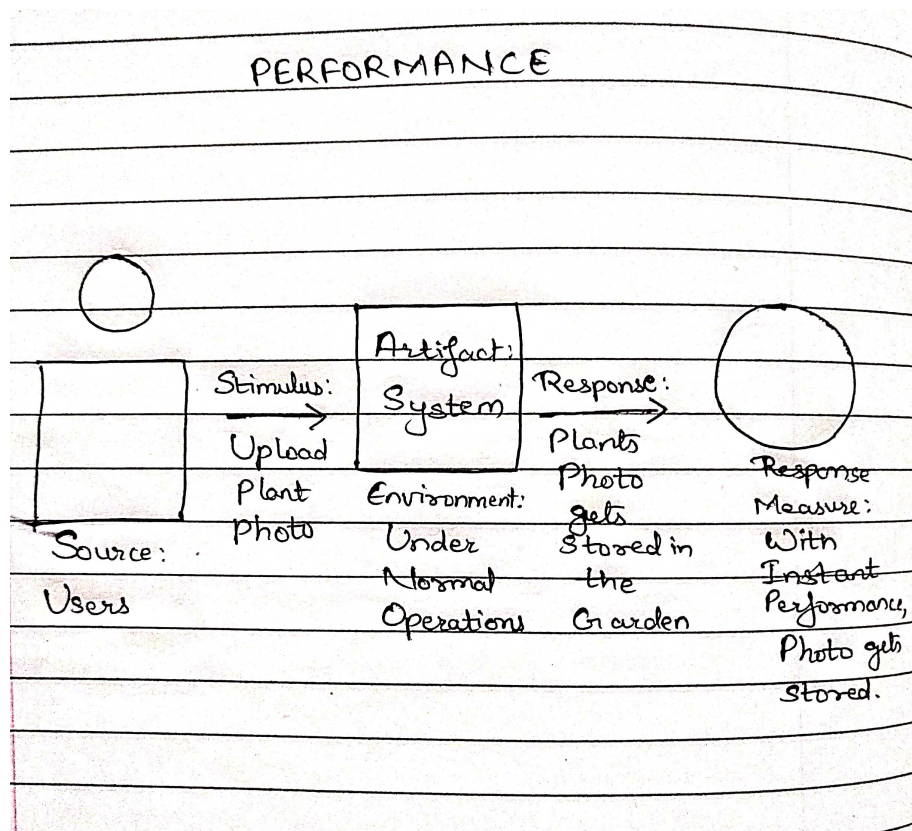 PERFORMANCE
Source:
Users
Stimulus:
Upload
Plant
Photo
Artifact:
System
Environment:
Under
Normal
Operations
Response:
Plants
Photo
gets
Stored in
the
Garden
Response
Measure:
With
Instant
Performance,
Photo gets
Stored.